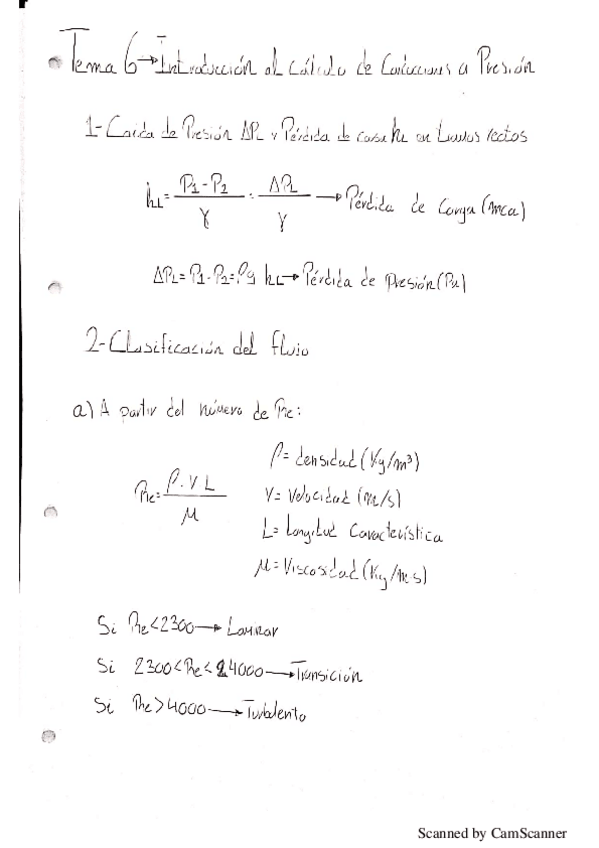 Tema 6→Introducción al cálculo de Conducciones a Presión
1-Caída de Presión ΔPL y Pérdida de carga hL en tubos rectos
hL = (P1 - P2)/γ = ΔPL/γ → Pérdida de Carga (mca)
ΔPL = P1 - P2 = ρg hL → Pérdida de Presión (Pa)
2-Clasificación del flujo
a) A partir del número de Re:
Re = ρ.V L/μ
ρ = densidad (Kg/m³)
V = Velocidad (m/s)
L = Longitud Característica
μ = Viscosidad (Kg/m s)
Si Re < 2300 → Laminar
Si 2300 < Re < 4000 → Transición
Si Re > 4000 → Turbulento
Scanned by CamScanner